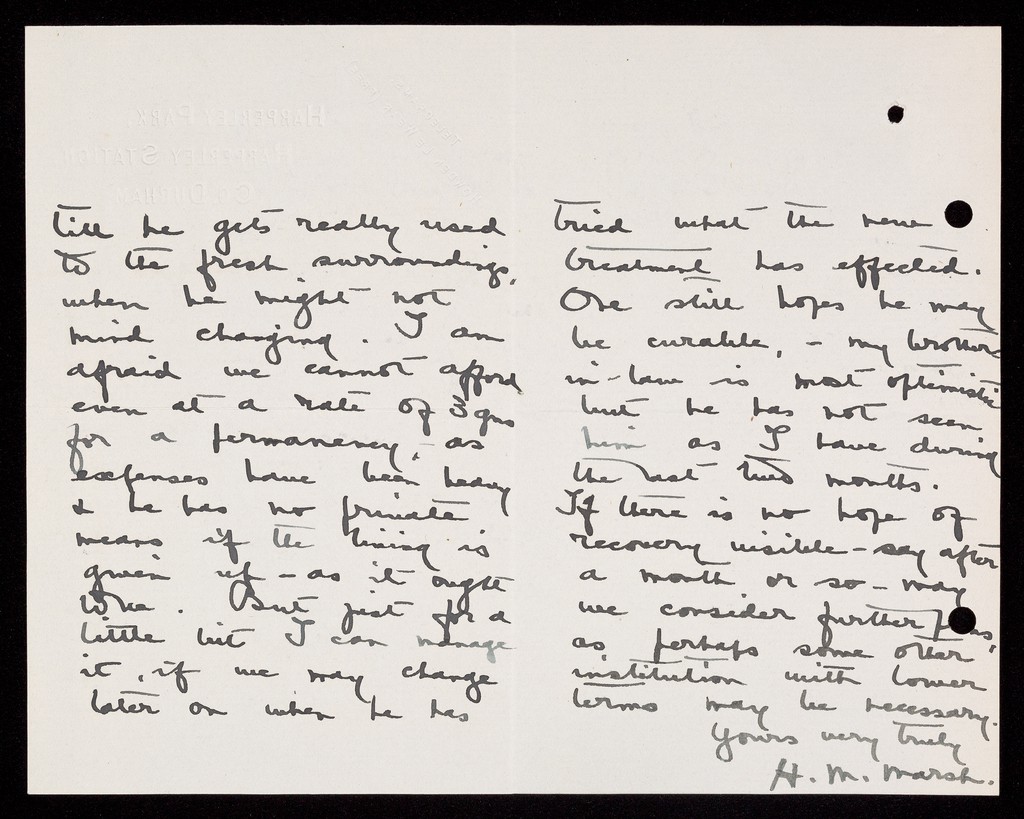 HARPERLEY PARK,
HARPERLEY STATION
CO. DURHAM
till he gets really used
to the fresh surroundings,
when he might not
mind changing. I am
afraid we cannot afford
even at a rate of 3 gns
for a permanency, - as
expenses have been heavy
& he has no private
means if the living is
given up - as it ought
to be. But just for a
little bit I can manage
it, if we may change
later on when he has
tried what the new
treatment has effected.
One still hopes he may
be curable, - my brother
in-law is most optimistic
but he has not seen
him as I have during
the last two months.
If there is no hope of
recovery visible - say after
a month or so - may
we consider further
as perhaps some other
institution with lower
terms may be necessary.
Yours very truly
H. M. Marsh.